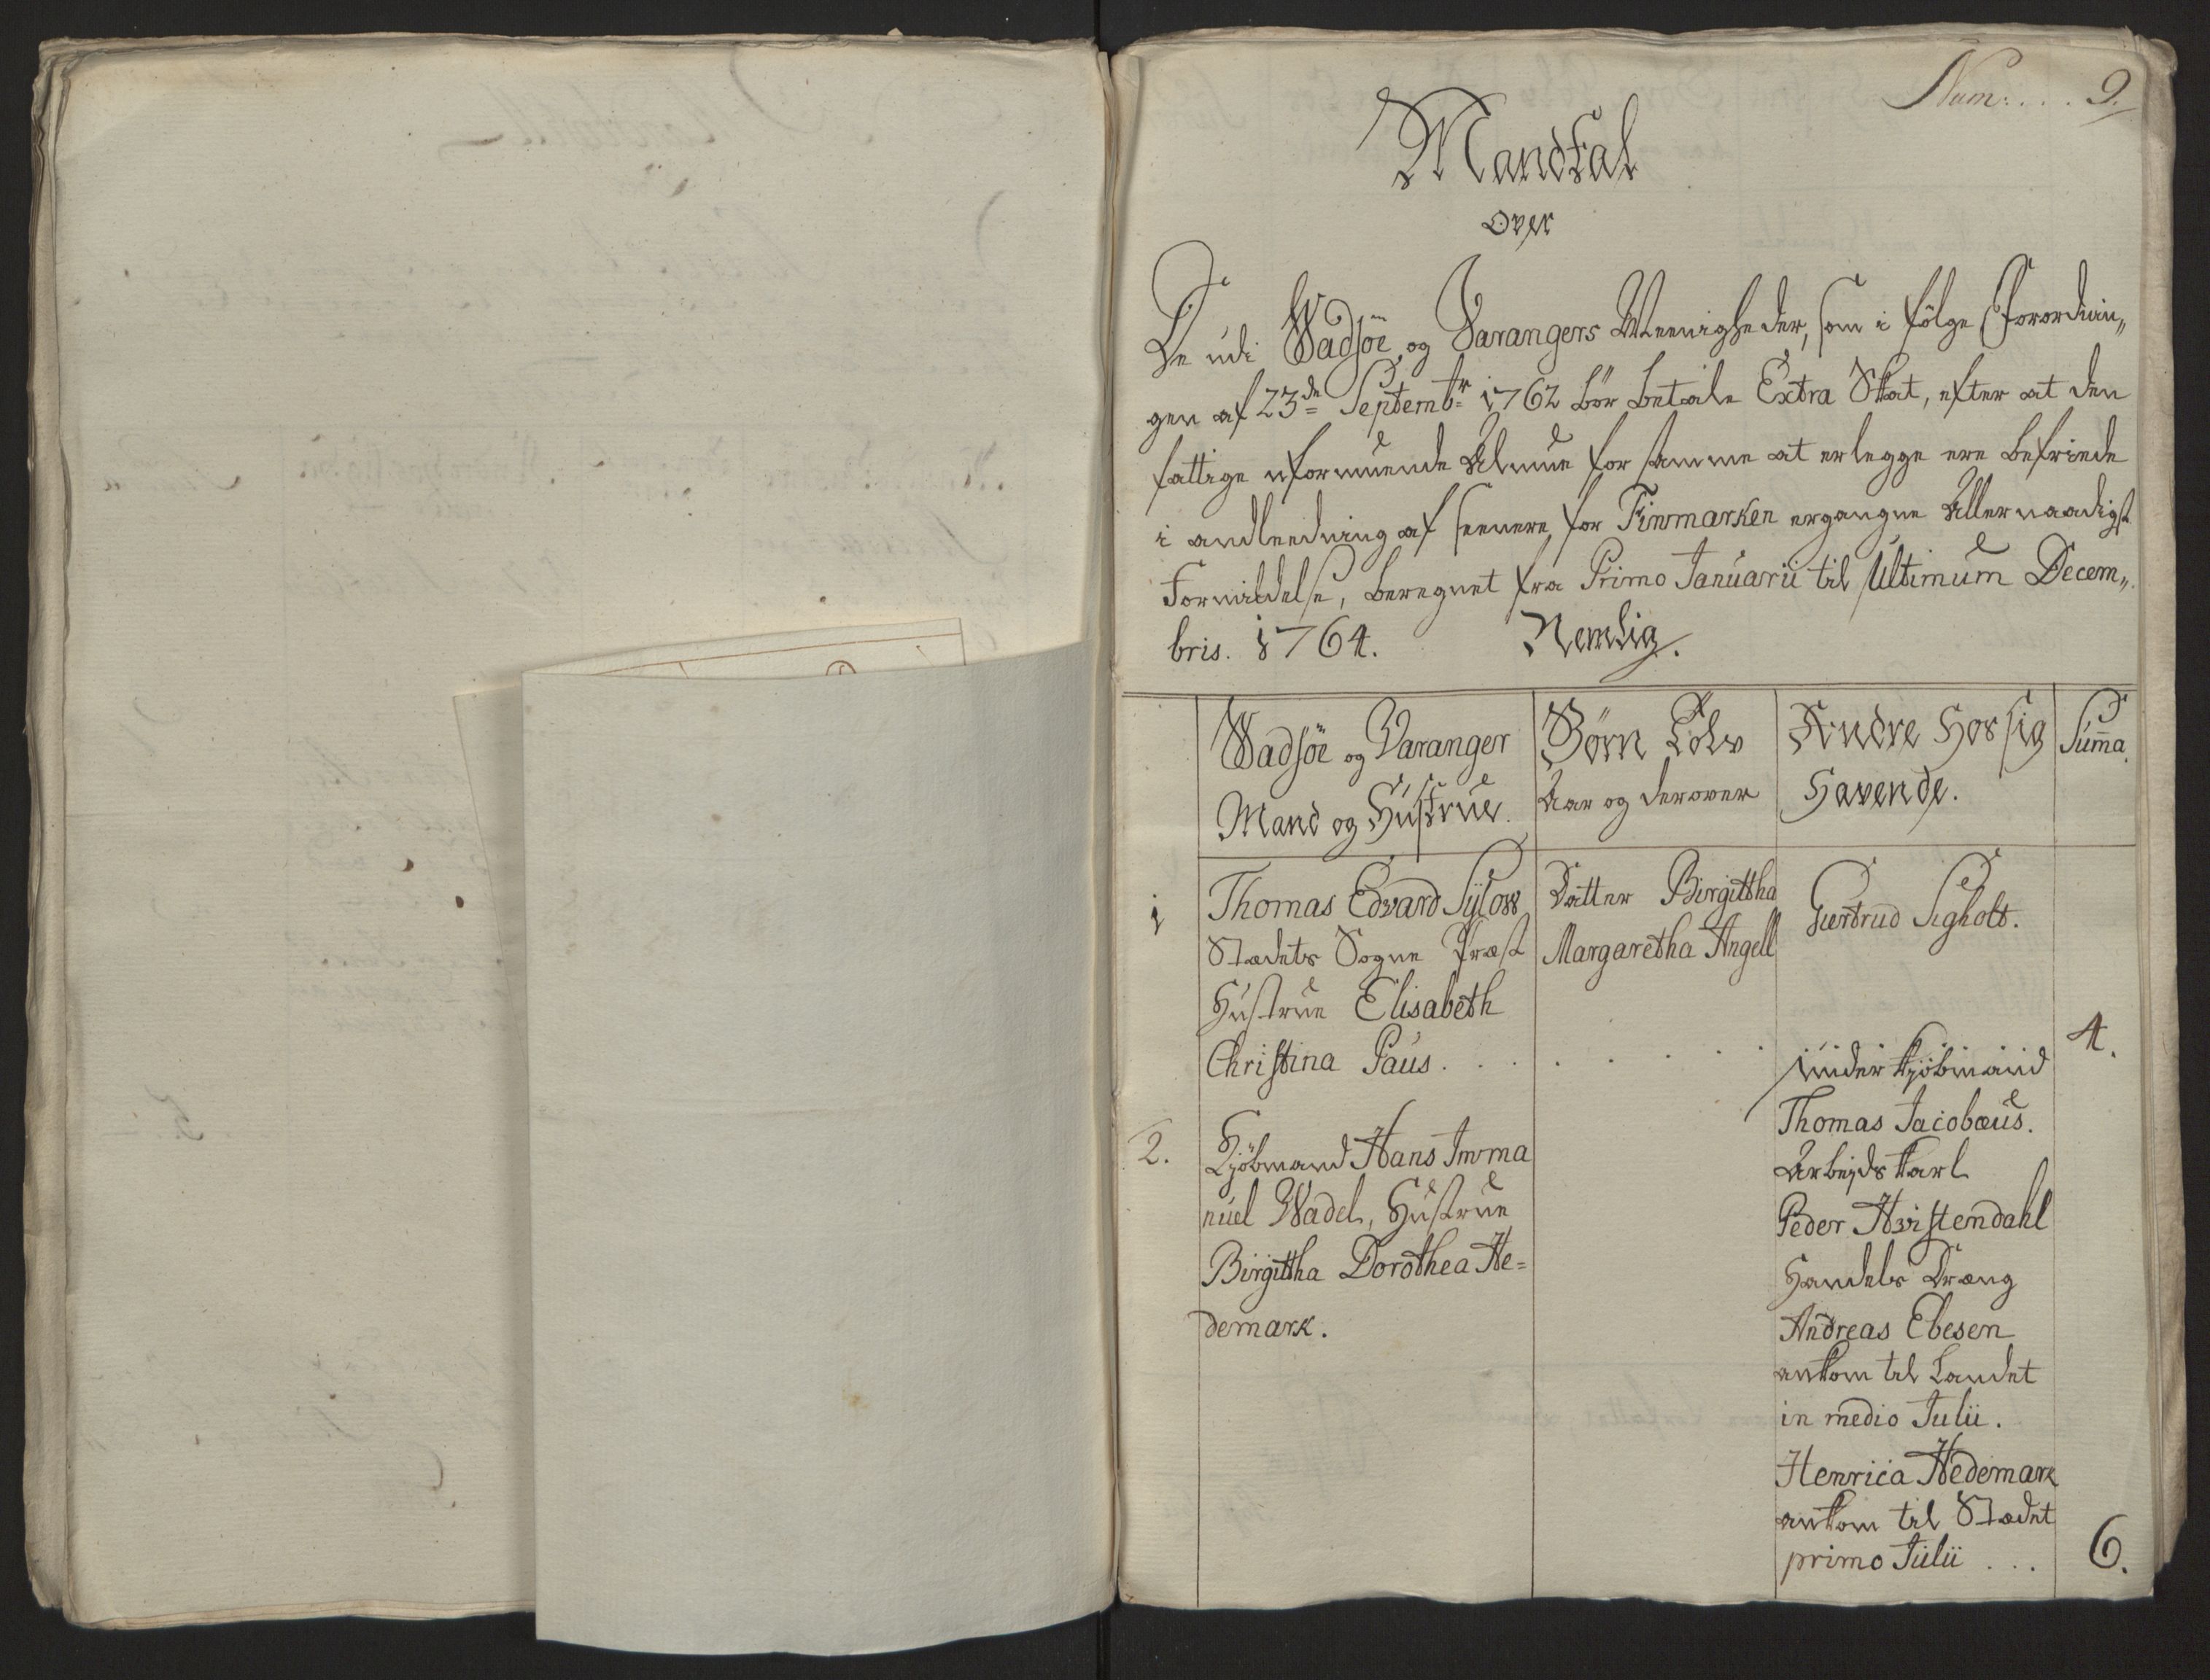 Num: . . . 9.
Mandtal
over
De udi Wadsöe og Varangers Meenigheder, som i fölge Forordnin„
gen af 23de Septembr 1762 bör betale Extra Skat, efter at den
fattige uformuende Almue for samme at erlegge ere befriede
i andleedning af seenere for Finmarken ergangne Allernaadigst
Formildelse, beregnet fra Primo Januarii til Ultimum Decem„
bris. 1764. Nemlig.
Wadsöe og Varanger
Mand og Hustrue.
Börn Tolv
Aar og derover
Andre Hos sig
Havende.
Suma.
1
Thomas Edvard Sylow
Stædets Sogne Præst
Hustrue Elisabeth
Christina Paus . . .
Datter Birgittha
Margaretha Angell
Giertrud Sigholt.
4.
2.
Kjöbmand Hans Imma
nuel Wadel, Hustrue
Birgittha Dorothea He=
demark.
Under Kjöbmand
Thomas Jacobæus.
Arbejds Karl
Peder Hvistendahl
Handels Dræng
Andreas Ebesen
ankom til Landet
in medio Julii.
Henrica Hedemark
ankom til Stædet
primo Julii . . .
6.